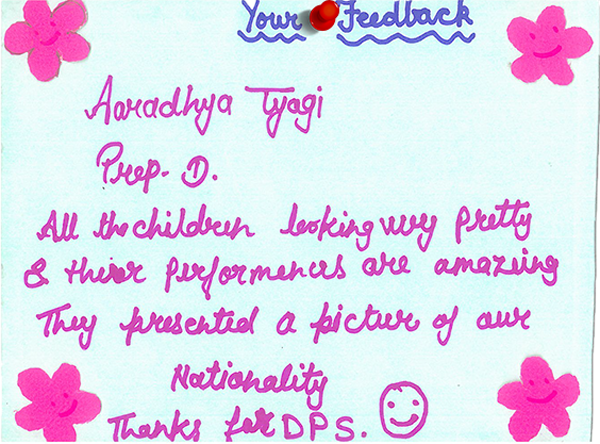 Your Feedback
Aaradhya Tyagi
Prep. D.
All the children looking very pretty
& their performences are amazing
They presented a picture of our
Nationality
Thanks for DPS.